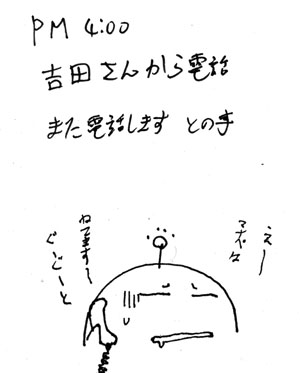 PM 4:00
吉田さんから電話
また電話します との事
えー
マナブは
ねてます〜
ぐーぐーと